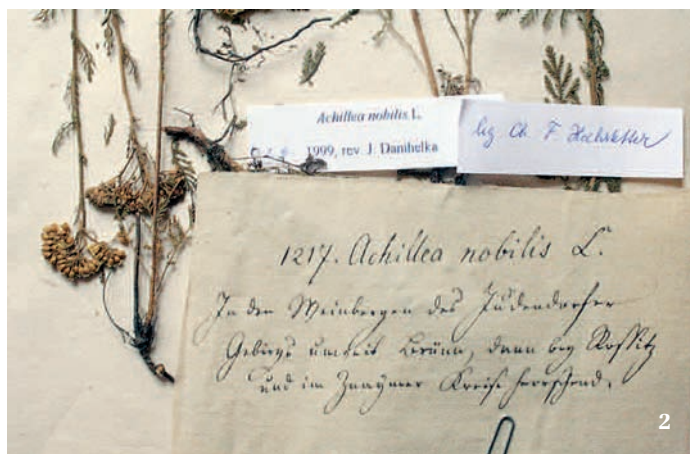 Achillea nobilis L.
1999, rev. J. Danihelka
leg. Ch. F. Hochstetter
1217. Achillea nobilis L.
In den Weinbergen des Judendorfer
Gebirgs unweit Brünn, dann bey Rossitz
und im Znaymer Kreise herrschend.
2